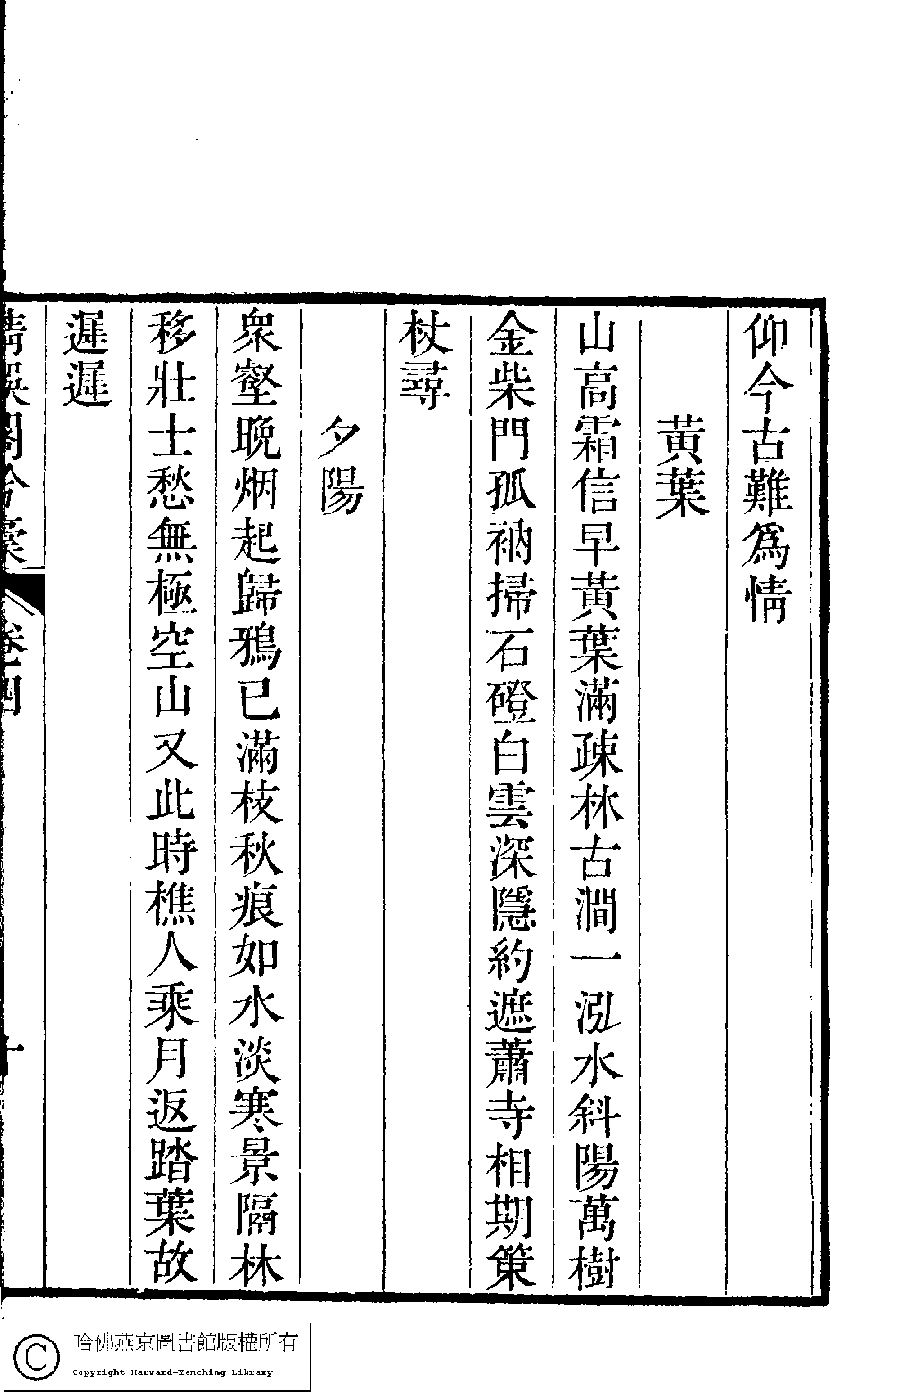 仰今古難爲情
黃葉
山高霜信早黃葉滿疎林古澗一泓水斜陽萬樹
金柴門孤衲掃石磴白雲深隱約遮蕭寺相期策
杖尋
夕陽
衆壑晚烟起歸鴉已滿枝秋痕如水淡寒景隔林
移壯士愁無極空山又此時樵人乘月返踏葉故
遲遲
卷四
十
哈佛燕京圖書館版權所有
Copyright Harvard-Yenching Library